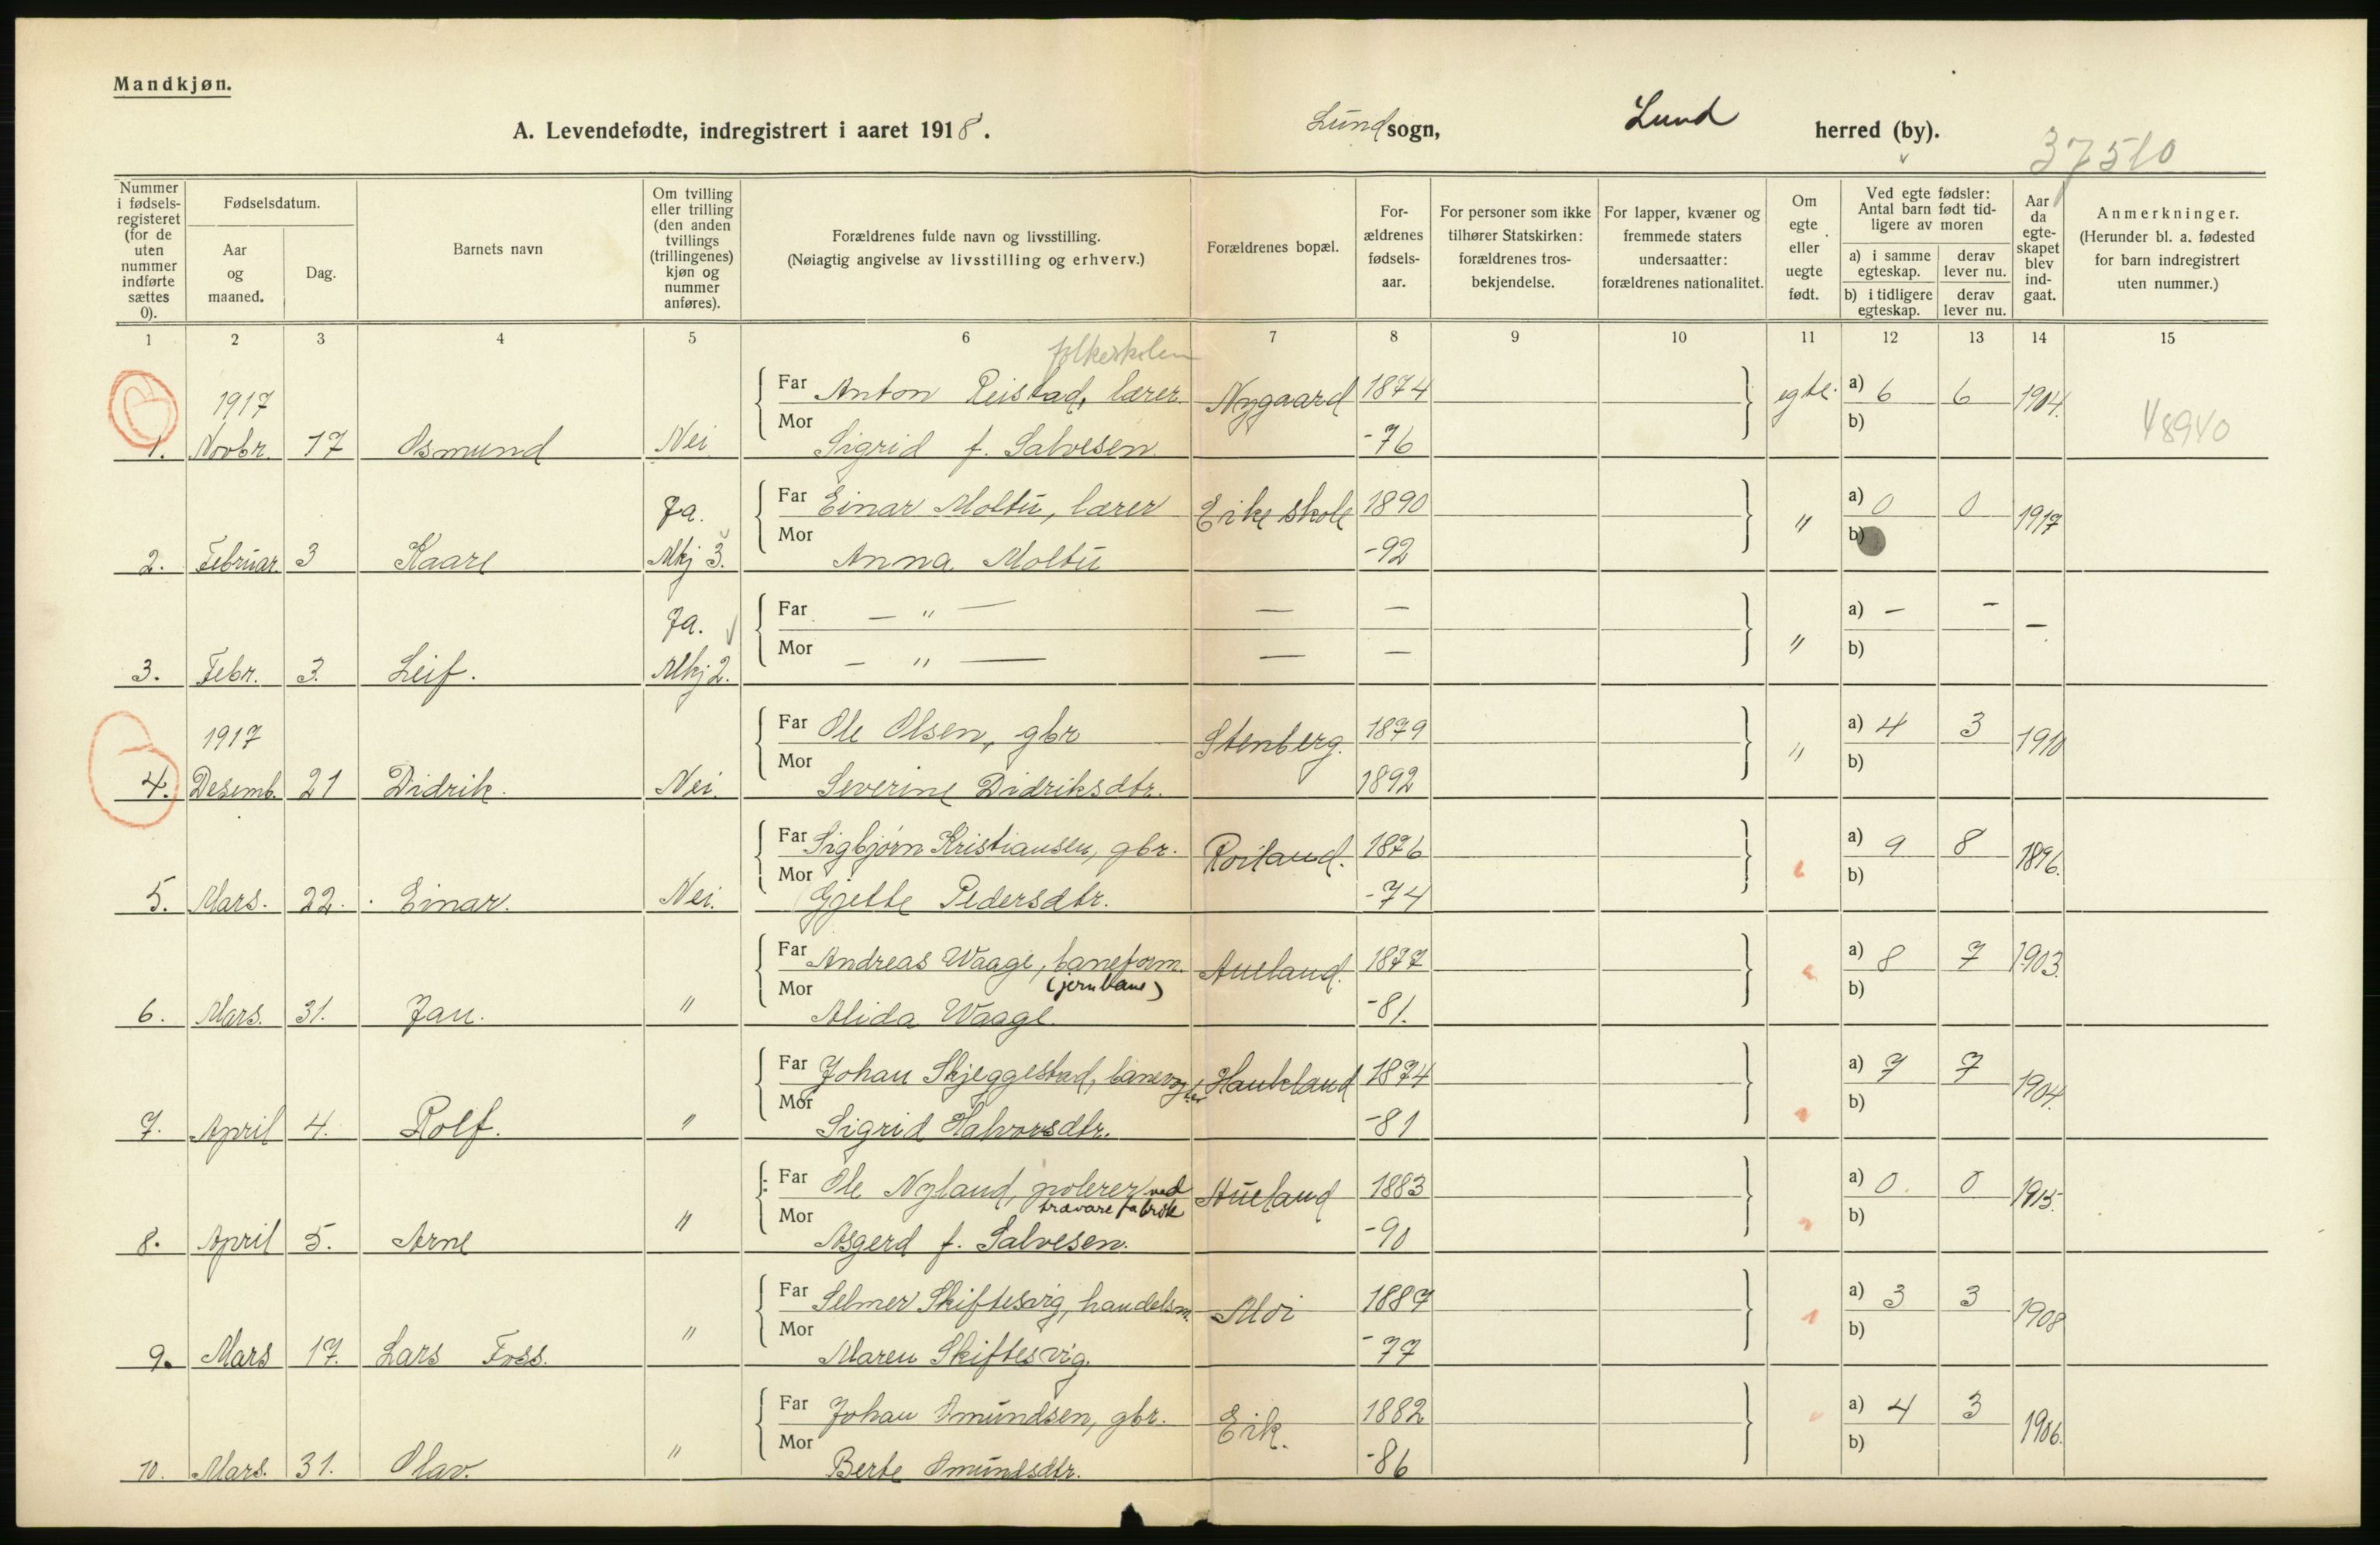 Mandkjøn.
A. Levendefødte, indregistrert i aaret 1918. Lund sogn, Lund herred (by).
37510
Nummer i fødsels-registeret (for de uten nummer indførte sættes 0).
Fødselsdatum.
Aar og maaned.
Dag.
Barnets navn
Om tvilling eller trilling (den anden tvillings (trillingenes) kjøn og nummer anføres).
Forældrenes fulde navn og livsstilling.
(Nøiagtig angivelse av livsstilling og erhverv.)
Forældrenes bopæl.
For-ældrenes fødsels-aar.
For personer som ikke tilhører Statskirken: forældrenes tros-bekjendelse.
For lapper, kvæner og fremmede staters undersaatter: forældrenes nationalitet.
Om egte eller uegte født.
Ved egte fødsler: Antal barn født tid-ligere av moren
a) i samme egteskap.
derav lever nu.
b) i tidligere egteskap.
derav lever nu.
Aar da egte-skapet blev ind-gaat.
Anmerkninger.
(Herunder bl. a. fødested for barn indregistrert uten nummer.)
1 2 3 4 5 6 7 8 9 10 11 12 13 14 15
folkeskolen
1917 Far Anton Reistad, lærer. Nygaard 1874 egte. a) 6 6 1904.
1. Novbr. 17 Osmund Nei Mor Sigrid f. Salvesen -76 b) 48940
Ja. Far Einar Moltu, lærer Eike skole 1890 " a) 0 0 1917
2. Februar 3 Kaare Mkj 3. Mor Anna Moltu -92 b)
Ja. Far — " — — — " a) — — —
3. Febr. 3. Leif. Mkj 2. Mor — " — — — b)
1917 Far Ole Olsen, gbr Stenberg. 1879 " a) 4 3 1910
4. Desemb. 21 Didrik. Nei. Mor Severine Didriksdtr. 1892 b)
Far Sigbjørn Kristiansen, gbr. Roiland. 1876 a) 9 8 1896.
5. Mars. 22. Einar. Nei. Mor Gjette Pedersdtr. -74 b)
Far Andreas Waage, baneform. Aueland. 1877 a) 8 7 1903.
(jernbane)
6. Mars. 31. Jan. " Mor Alida Waage. -81. b)
Far Johan Skjeggestad, banevogter Haukland 1874 a) 7 7 1904.
7. April 4. Rolf. " Mor Sigrid Halvorsdtr. -81 b)
Far Ole Nyland, polerer ved Hueland 1883 a) 0. 0 1915.
trævarefabrik
8. April 5. Arne " Mor Asgerd f. Salvesen. -90 b)
Far Selmer Skiftesvig, handelsm. Moi 1887 a) 3 3 1908
9. Mars 17. Lars Foss. " Mor Maren Skiftesvig. -77 b)
Far Johan Omundsen, gbr. Eik. 1882 a) 4 3 1906.
10. Mars. 31. Olav. " Mor Berte Omundsdtr. -86 b)